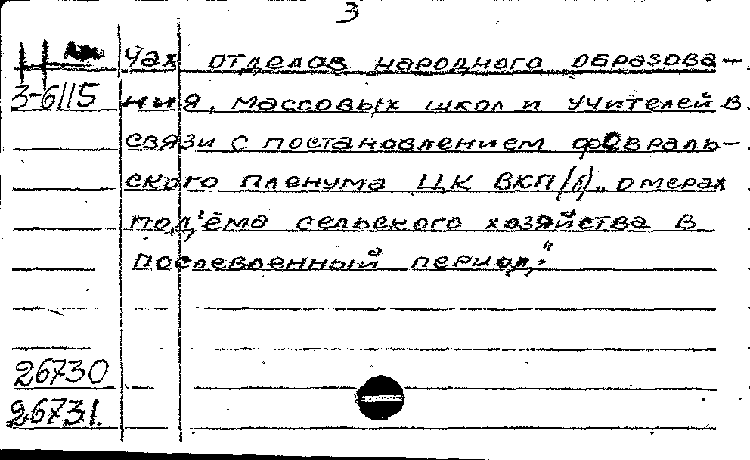 3
чах отделов народного образова-
3-6115 ния, массовых школ и учителей в
связи с постановлением февраль-
ского пленума ЦК ВКП/б/ „о мерах
под'ёма сельского хозяйства в
послевоенный период."
26730
26731.